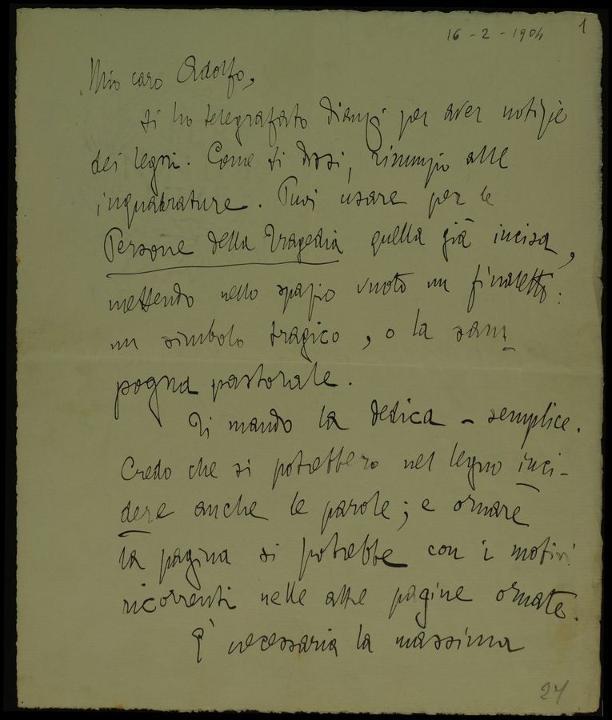 16-2-1904
1
Mio caro Adolfo,
ti ho telegrafato dianzi per aver notizie
dei legni. Come ti dissi, rinunzio alle
inquadrature. Puoi usare per le
Persone della Tragedia quella già incisa,
mettendo nello spazio vuoto un finaletto:
un simbolo tragico, o la sam-
pogna pastorale.
Ti mando la dedica - semplice.
Credo che si potrebbero nel legno inci-
dere anche le parole; e ornare
la pagina si potrebbe con i motivi
ricorrenti nelle altre pagine ornate.
È necessaria la massima
27